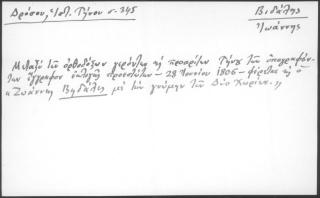 Δρόσου, Ἱστ. Τήνου σ. 345
Βιδάλης
Ἰωάννης
Μεταξὺ τῶν ὀρθοδόξων γερόντων καὶ προκρίτων Τήνου τῶν ὑπογραφόν-
των ἔγγραφον ἐκλογῆς προεστώτων – 28 Ἰουνίου 1806 – φέρεται καὶ ὁ
"Ζωάννης Βηδάλης μὲ τὴν γνώμην τῶν Δύο Χωρίων."